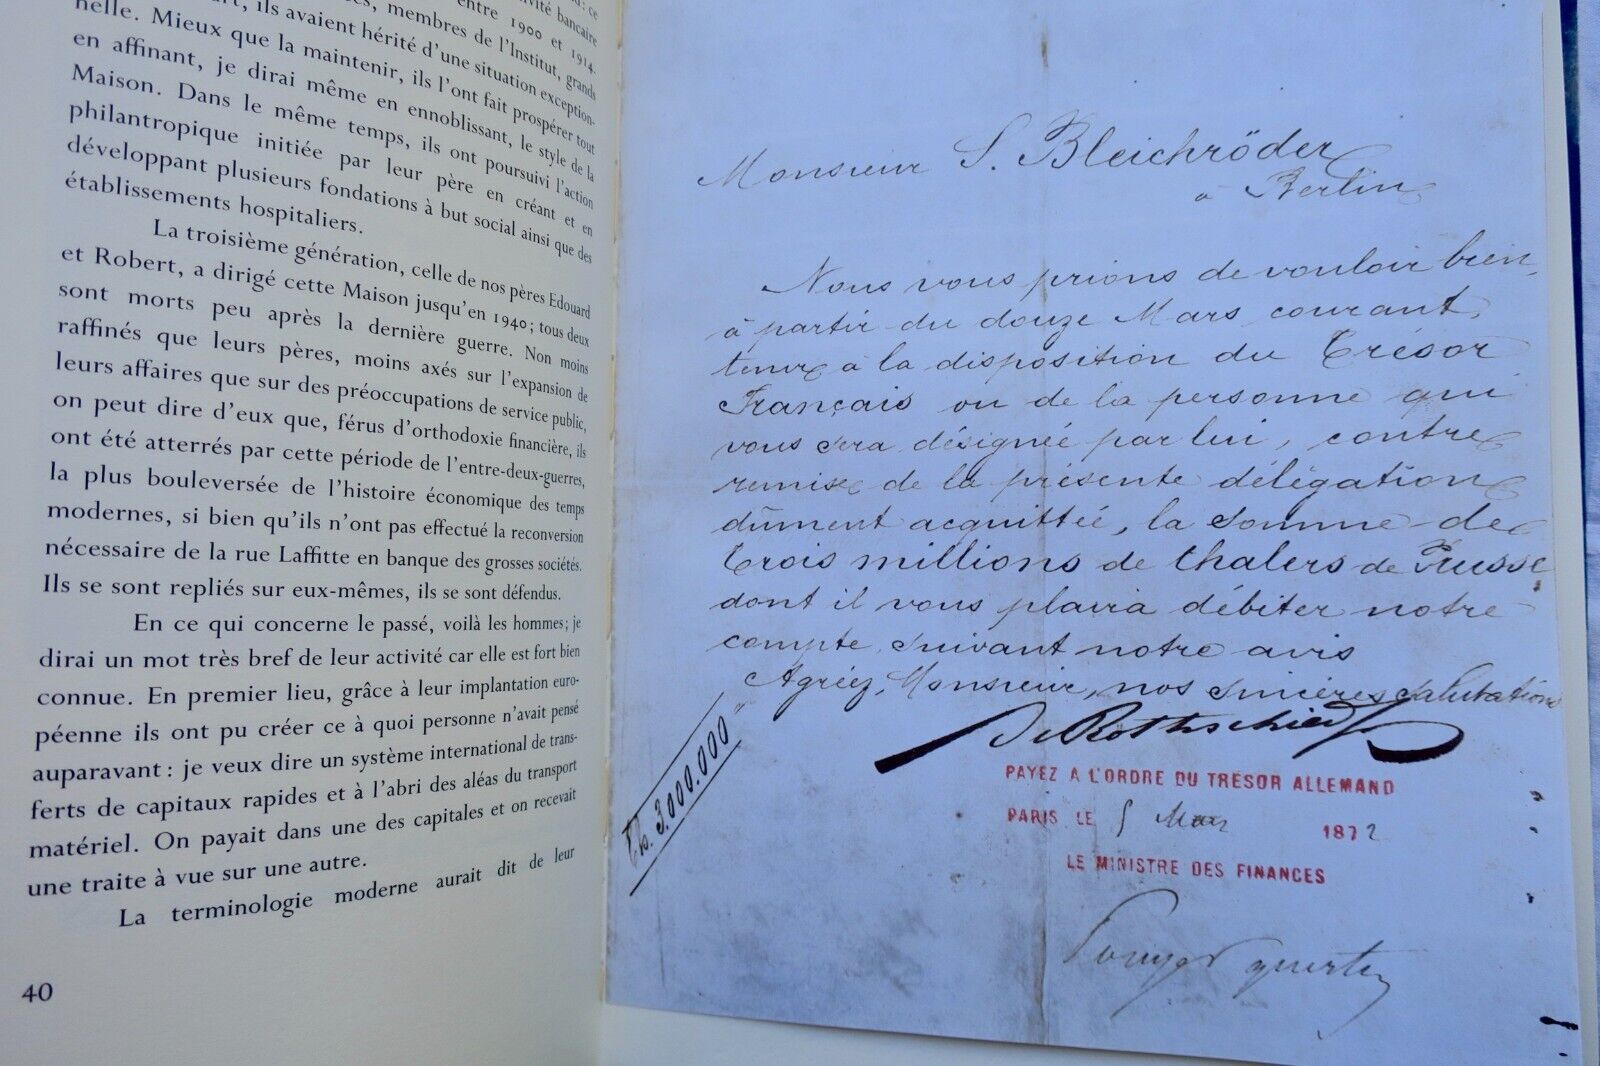 ité bancaire
entre 1900 et 1914.
ils avaient hérité d'une situation exception-
membres de l'Institut, grands
nelle. Mieux que la maintenir, ils l'ont fait prospérer tout
en affinant, je dirai même en ennoblissant, le style de la
Maison. Dans le même temps, ils ont poursuivi l'action
philantropique initiée par leur père en créant et en
développant plusieurs fondations à but social ainsi que des
établissements hospitaliers.
La troisième génération, celle de nos pères Edouard
et Robert, a dirigé cette Maison jusqu'en 1940; tous deux
sont morts peu après la dernière guerre. Non moins
raffinés que leurs pères, moins axés sur l'expansion de
leurs affaires que sur des préoccupations de service public,
on peut dire d'eux que, férus d'orthodoxie financière, ils
ont été atterrés par cette période de l'entre-deux-guerres,
la plus bouleversée de l'histoire économique des temps
modernes, si bien qu'ils n'ont pas effectué la reconversion
nécessaire de la rue Laffitte en banque des grosses sociétés.
Ils se sont repliés sur eux-mêmes, ils se sont défendus.
En ce qui concerne le passé, voilà les hommes; je
dirai un mot très bref de leur activité car elle est fort bien
connue. En premier lieu, grâce à leur implantation euro-
péenne ils ont pu créer ce à quoi personne n'avait pensé
auparavant : je veux dire un système international de trans-
ferts de capitaux rapides et à l'abri des aléas du transport
matériel. On payait dans une des capitales et on recevait
une traite à vue sur une autre.
La terminologie moderne aurait dit de leur
40
Monsieur S. Bleichröder
à Berlin
Nous vous prions de vouloir bien,
à partir du douze Mars courant,
tenir à la disposition du Trésor
Français ou de la personne qui
vous sera désignée par lui, contre
remise de la présente délégation
dûment acquittée, la somme de
Trois millions de thalers de Prusse
dont il vous plaira débiter notre
compte suivant notre avis
Agréez, Monsieur, nos sincères salutations
De Rothschild
Th. 3.000.000"
PAYEZ A L'ORDRE DU TRESOR ALLEMAND
PARIS LE 5 Mars 1872
LE MINISTRE DES FINANCES
Pouyer Quertier